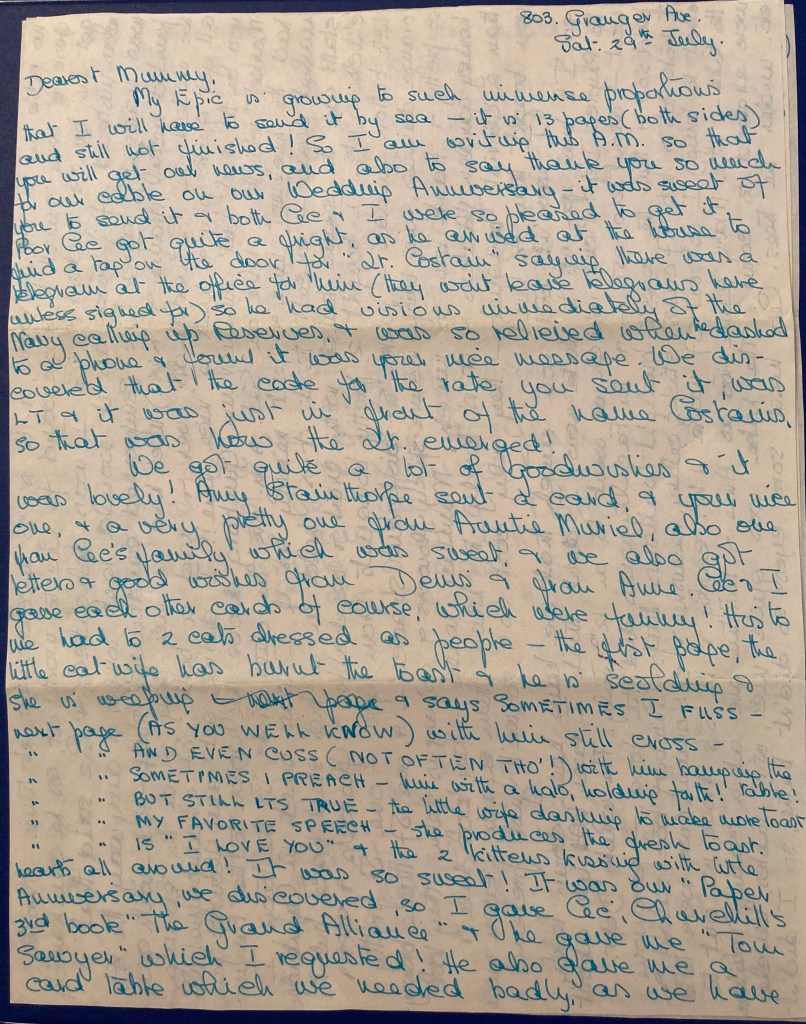 803. Granger Ave.
Sat. 29th July.
Dearest Mummy,
My Epic is growing to such immense proportions
that I will have to send it by sea – it is 13 pages (both sides)
and still not finished! So I am writing this A.M. so that
you will get our news, and also to say thank you so much
for our cable on our Wedding Anniversary – it was sweet of
you to send it & both Cec & I were so pleased to get it.
Poor Cec got quite a fright, as he arrived at the house to
find a tag on the door for "Lt. Costain" saying there was a
telegram at the office for him (they wont leave telegrams here
unless signed for) so he had visions immediately of the
Navy calling up Reserves, & was so relieved when he dashed
to a phone & found it was your nice message. We dis-
covered that the code for the rate you sent it, was
LT & it was just in front of the name Costains,
so that was how the Lt. emerged!
We got quite a lot of Goodwishes & it
was lovely! Amy Stainthorpe sent a card, & your nice
one, & a very pretty one from Auntie Muriel, also one
from Cec's family which was sweet, & we also got
letters & good wishes from Denis & from Anne. Cec & I
gave each other cards of course, which were funny! His to
me had to 2 cats dressed as people – the first page, the
little cat wife has burnt the toast & he is scolding &
she is weeping next page & says SOMETIMES I FUSS –
next page (AS YOU WELL KNOW) with him still cross –
" " AND EVEN CUSS (NOT OFTEN THO'!) with him banging the
table!
" " SOMETIMES I PREACH – him with a halo, holding forth!
" " BUT STILL ITS TRUE – the little wife dashing to make more toast
" " MY FAVORITE SPEECH – she produces the fresh toast.
" " IS "I LOVE YOU" & the 2 kittens kissing with little
hearts all around! It was so sweet! It was our "Paper
Anniversary, we discovered, so I gave Cec, Churchill's
3rd book "The Grand Alliance" & he gave me "Tom
Sawyer" which I requested! He also gave me a
card table which we needed badly, as we have